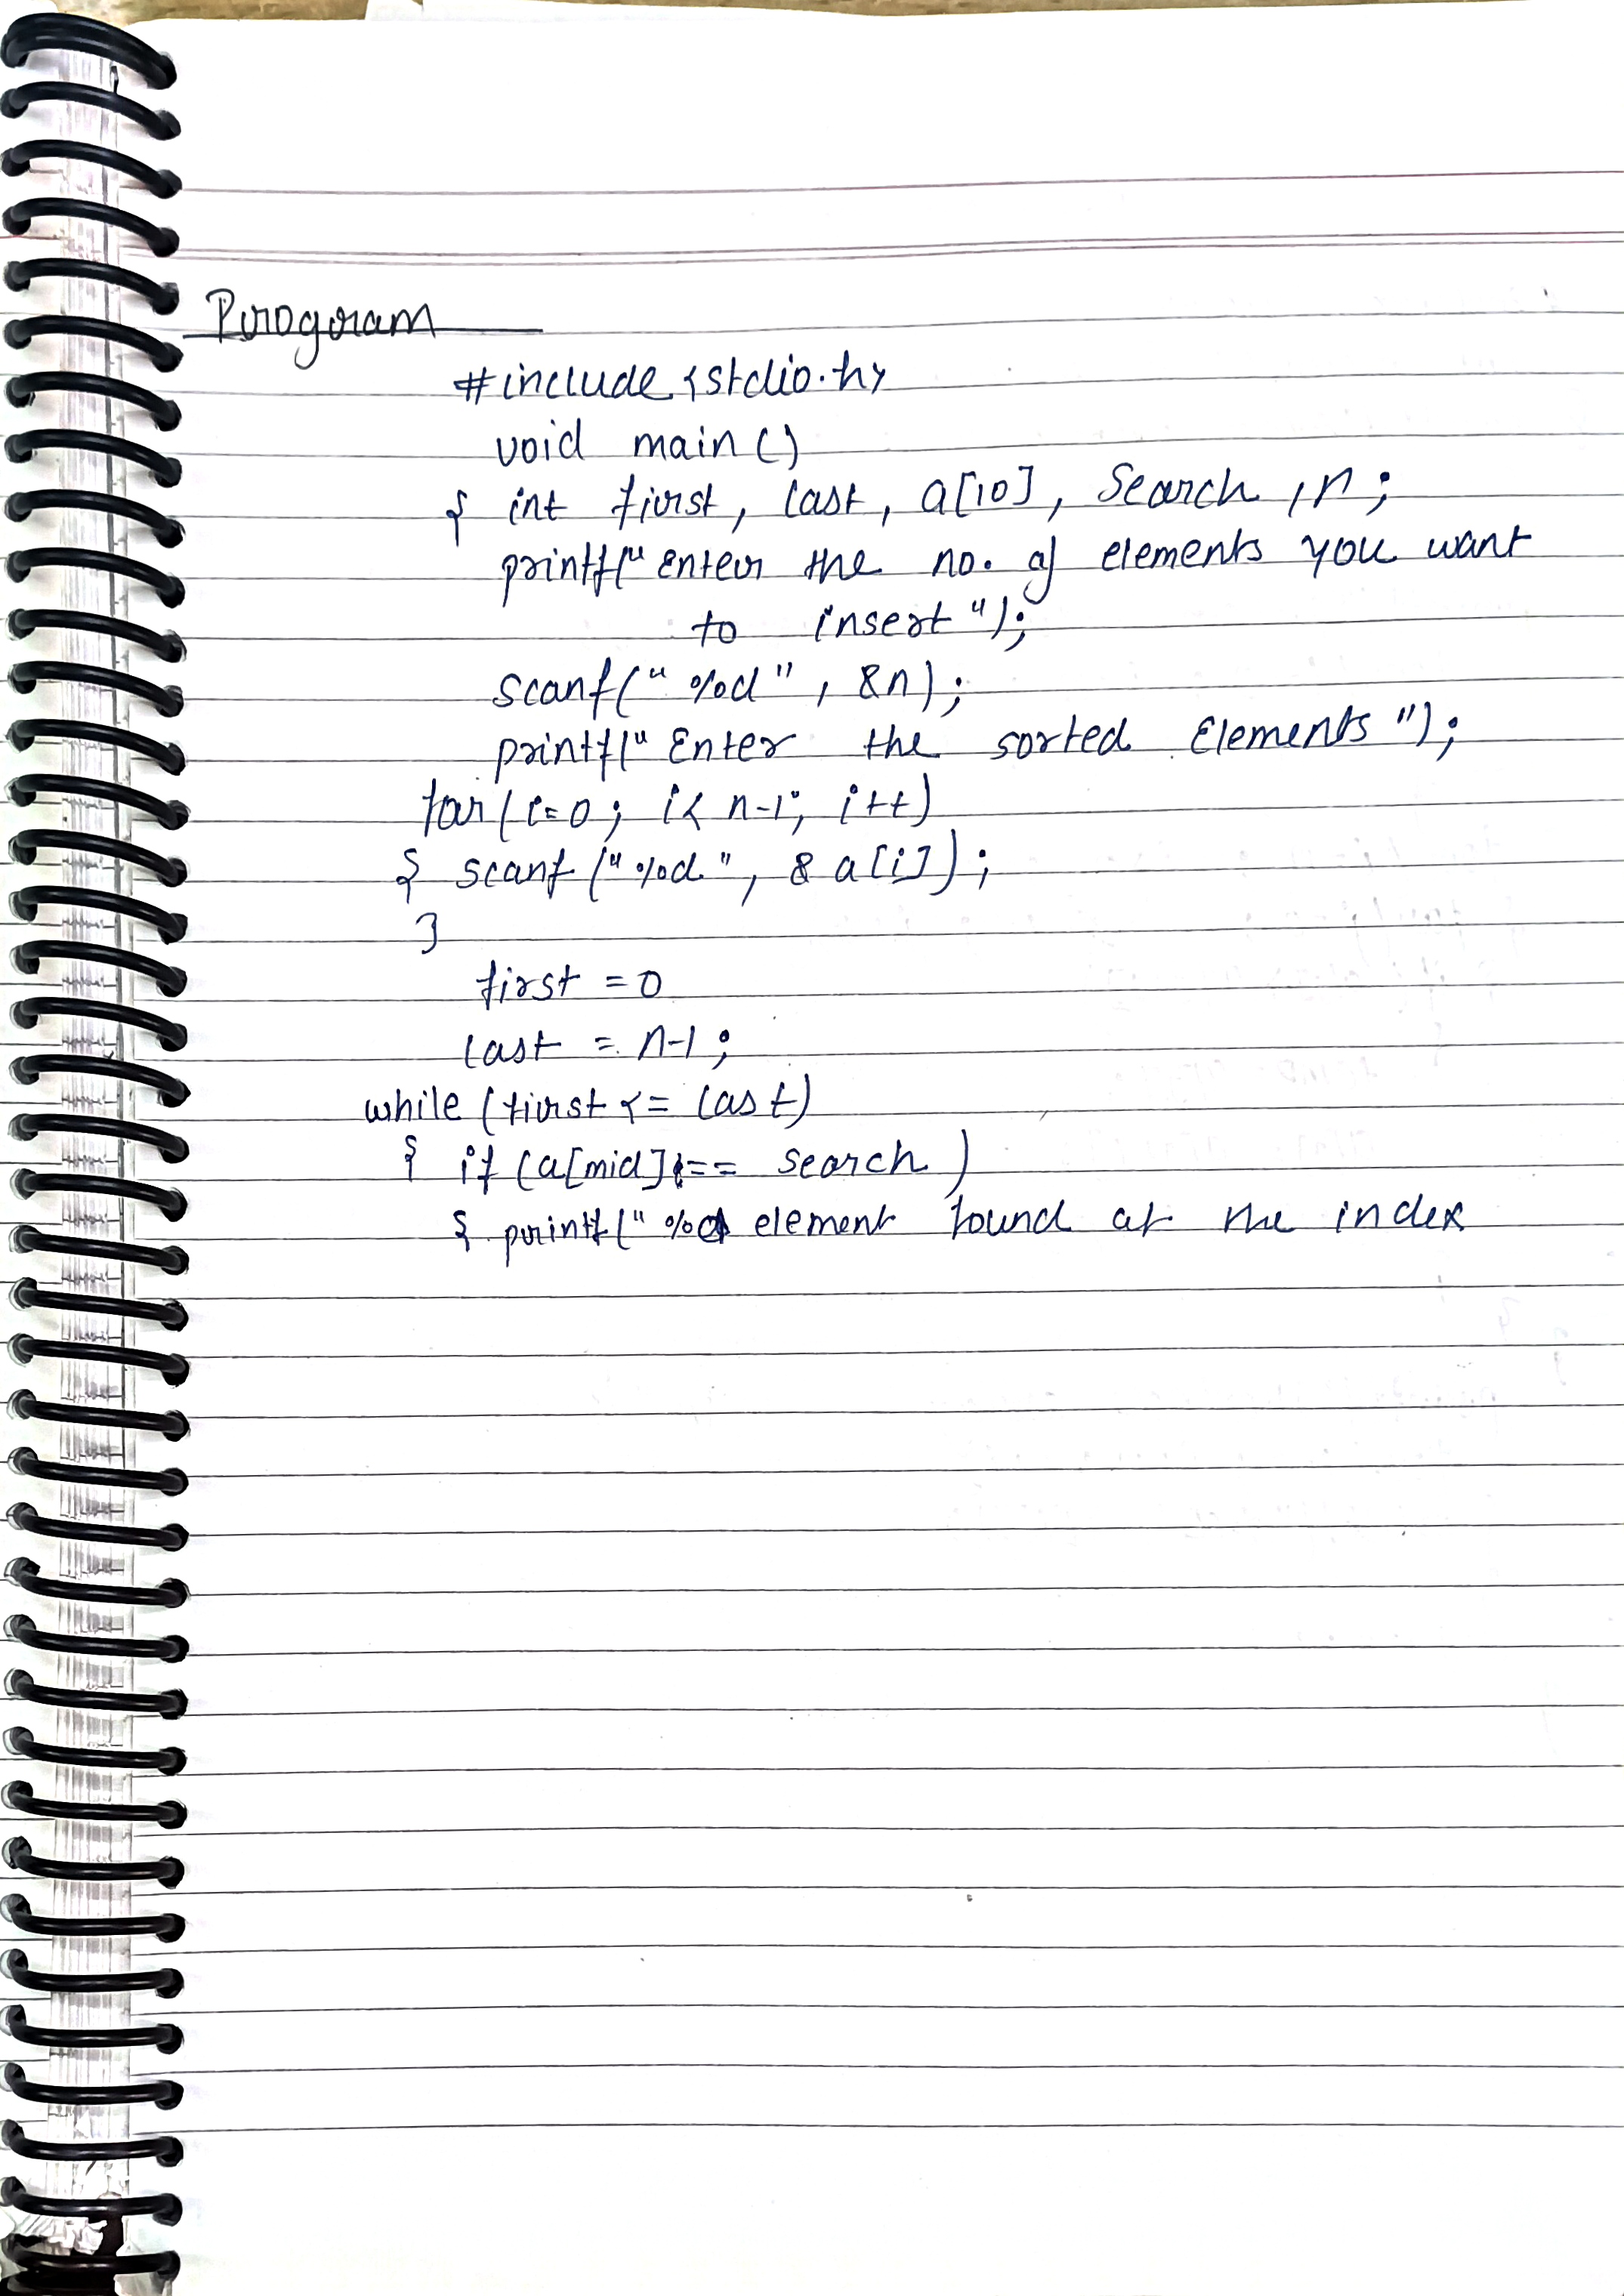 Program
#include <stdio.h>
void main()
{ int first, last, a[10], Search, n;
printf("Enter the no. of elements you want
to insert");
scanf("%d", &n);
printf("Enter the sorted Elements");
for(i=0; i< n-1; i++)
{ scanf("%d", & a[i]);
}
first = 0
last = n-1;
while (first <= last)
{ if (a[mid] == search)
{ printf("%d element found at the index